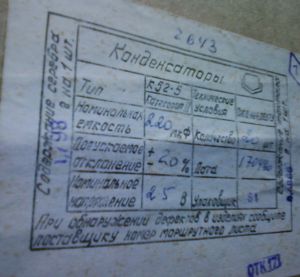 2643
Содержание серебра
в на 1 шт.
1,198
Конденсаторы
Тип К52-5
Категория Технические условия
Номинальная емкость 220 мкФ Количество 20
Допускаемое отклонение ± 20% Дата
Номинальное напряжение 25 В Упаковщик 81
При обнаружении дефектов в изделиях сообщите
поставщику номер маршрутного листа
ОТК 173